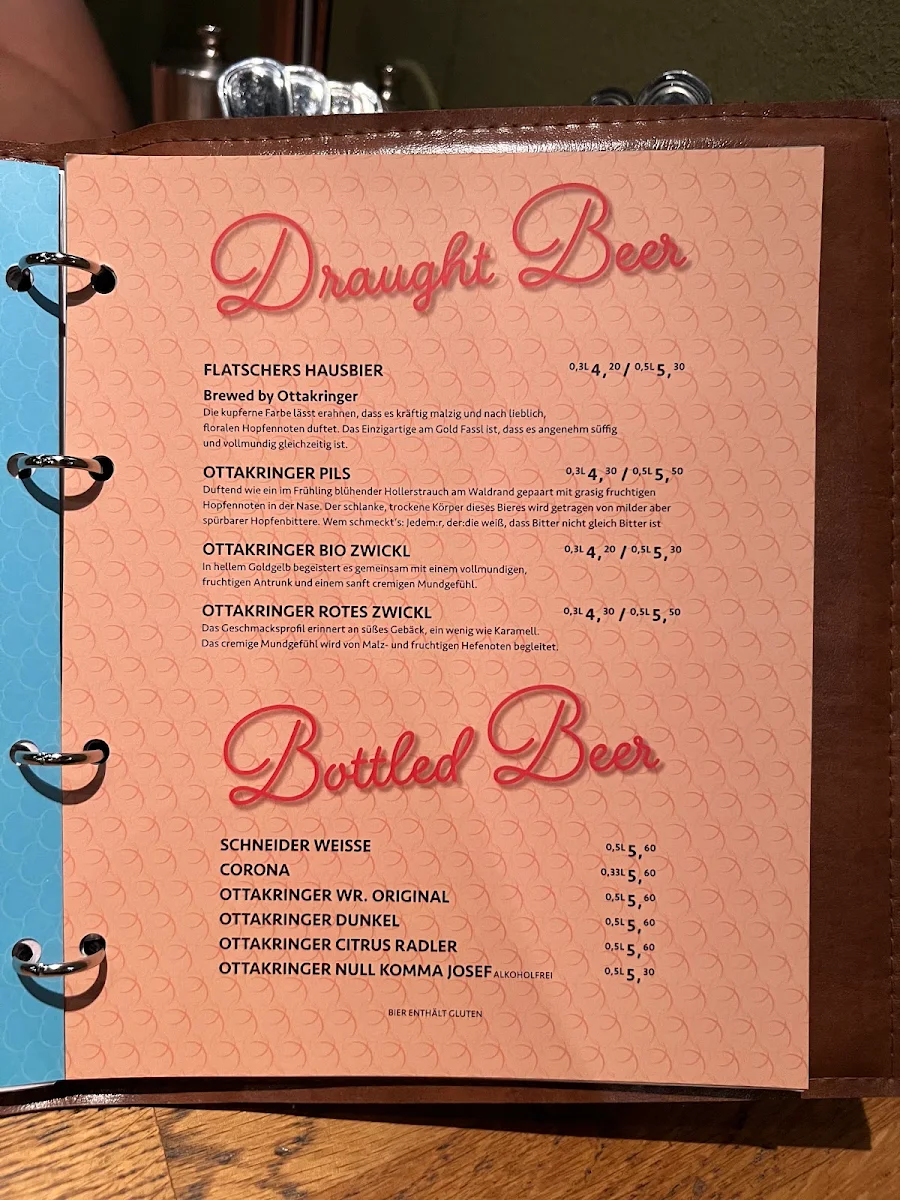 Draught Beer
FLATSCHERS HAUSBIER 0,3L 4,20 / 0,5L 5,30
Brewed by Ottakringer
Die kupferne Farbe lässt erahnen, dass es kräftig malzig und nach lieblich,
floralen Hopfennoten duftet. Das Einzigartige am Gold Fassl ist, dass es angenehm süffig
und vollmundig gleichzeitig ist.
OTTAKRINGER PILS 0,3L 4,30 / 0,5L 5,50
Duftend wie ein im Frühling blühender Hollerstrauch am Waldrand gepaart mit grasig fruchtigen
Hopfennoten in der Nase. Der schlanke, trockene Körper dieses Bieres wird getragen von milder aber
spürbarer Hopfenbittere. Wem schmeckt's: Jedem:r, der:die weiß, dass Bitter nicht gleich Bitter ist
OTTAKRINGER BIO ZWICKL 0,3L 4,20 / 0,5L 5,30
In hellem Goldgelb begeistert es gemeinsam mit einem vollmundigen,
fruchtigen Antrunk und einem sanft cremigen Mundgefühl.
OTTAKRINGER ROTES ZWICKL 0,3L 4,30 / 0,5L 5,50
Das Geschmacksprofil erinnert an süßes Gebäck, ein wenig wie Karamell.
Das cremige Mundgefühl wird von Malz- und fruchtigen Hefenoten begleitet.
Bottled Beer
SCHNEIDER WEISSE 0,5L 5,60
CORONA 0,33L 5,60
OTTAKRINGER WR. ORIGINAL 0,5L 5,60
OTTAKRINGER DUNKEL 0,5L 5,60
OTTAKRINGER CITRUS RADLER 0,5L 5,60
OTTAKRINGER NULL KOMMA JOSEF ALKOHOLFREI 0,5L 5,30
BIER ENTHÄLT GLUTEN